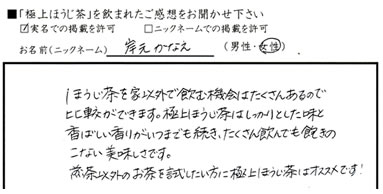 ■「極上ほうじ茶」を飲まれたご感想をお聞かせ下さい
☑実名での掲載を許可　□ニックネームでの掲載を許可
お名前(ニックネーム) 岸元 かなえ (男性・女性)
ほうじ茶を家以外で飲む機会はたくさんあるので
比較ができます。極上ほうじ茶はしっかりとした味と
香ばしい香りがいつまでも続き、たくさん飲んでも飽きの
こない美味しさです。
煎茶以外のお茶を試したい方に極上ほうじ茶はオススメです!